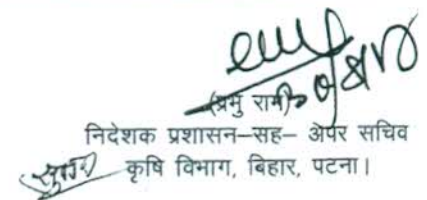 (प्रभु राम)
निदेशक प्रशासन–सह– अपर सचिव
कृषि विभाग, बिहार, पटना।